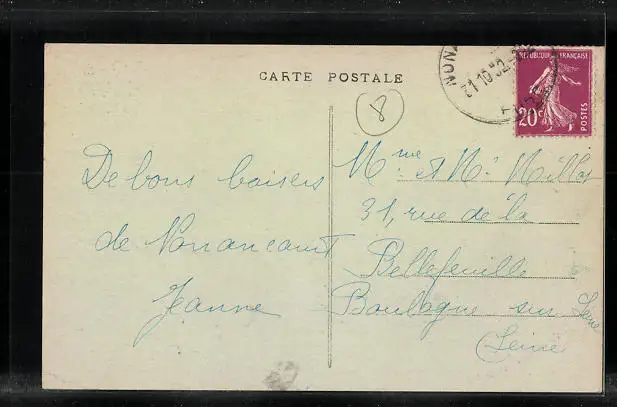 CARTE POSTALE
8
31 10 32
REPUBLIQUE FRANÇAISE
20c
POSTES
De bons baisers
de Nonancourt
Jeanne
Mme et Mr Millot
31, rue de la
Bellefeuille
Boulogne sur Seine
(Seine